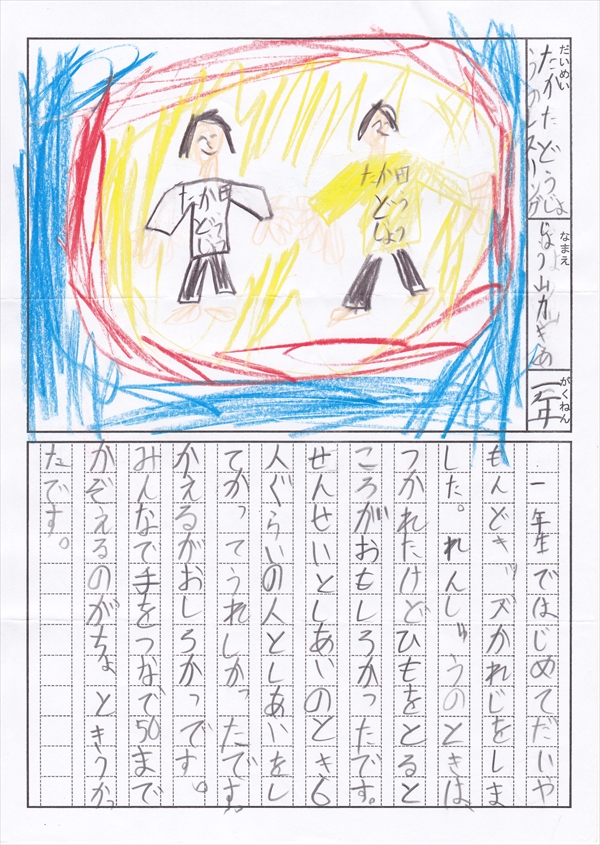 だいめい
たかたどうじょ
うのレスリング
なまえ
がくねん
たか田
どう
じょう
たか田
どう
じょう
一年生ではじめてだいや
もんどき゛ズかれじをしま
した。れんじゅうのときは、
つかれたけどひもをとると
ころがおもしろかったです。
せんせいとしあいのとき6
人ぐらいの人としあいをし
てかってうれしかったです。
かえるがおしろかっです。
みんなで手をつなで50まで
かぞえるのがちょときつかっ
たです。